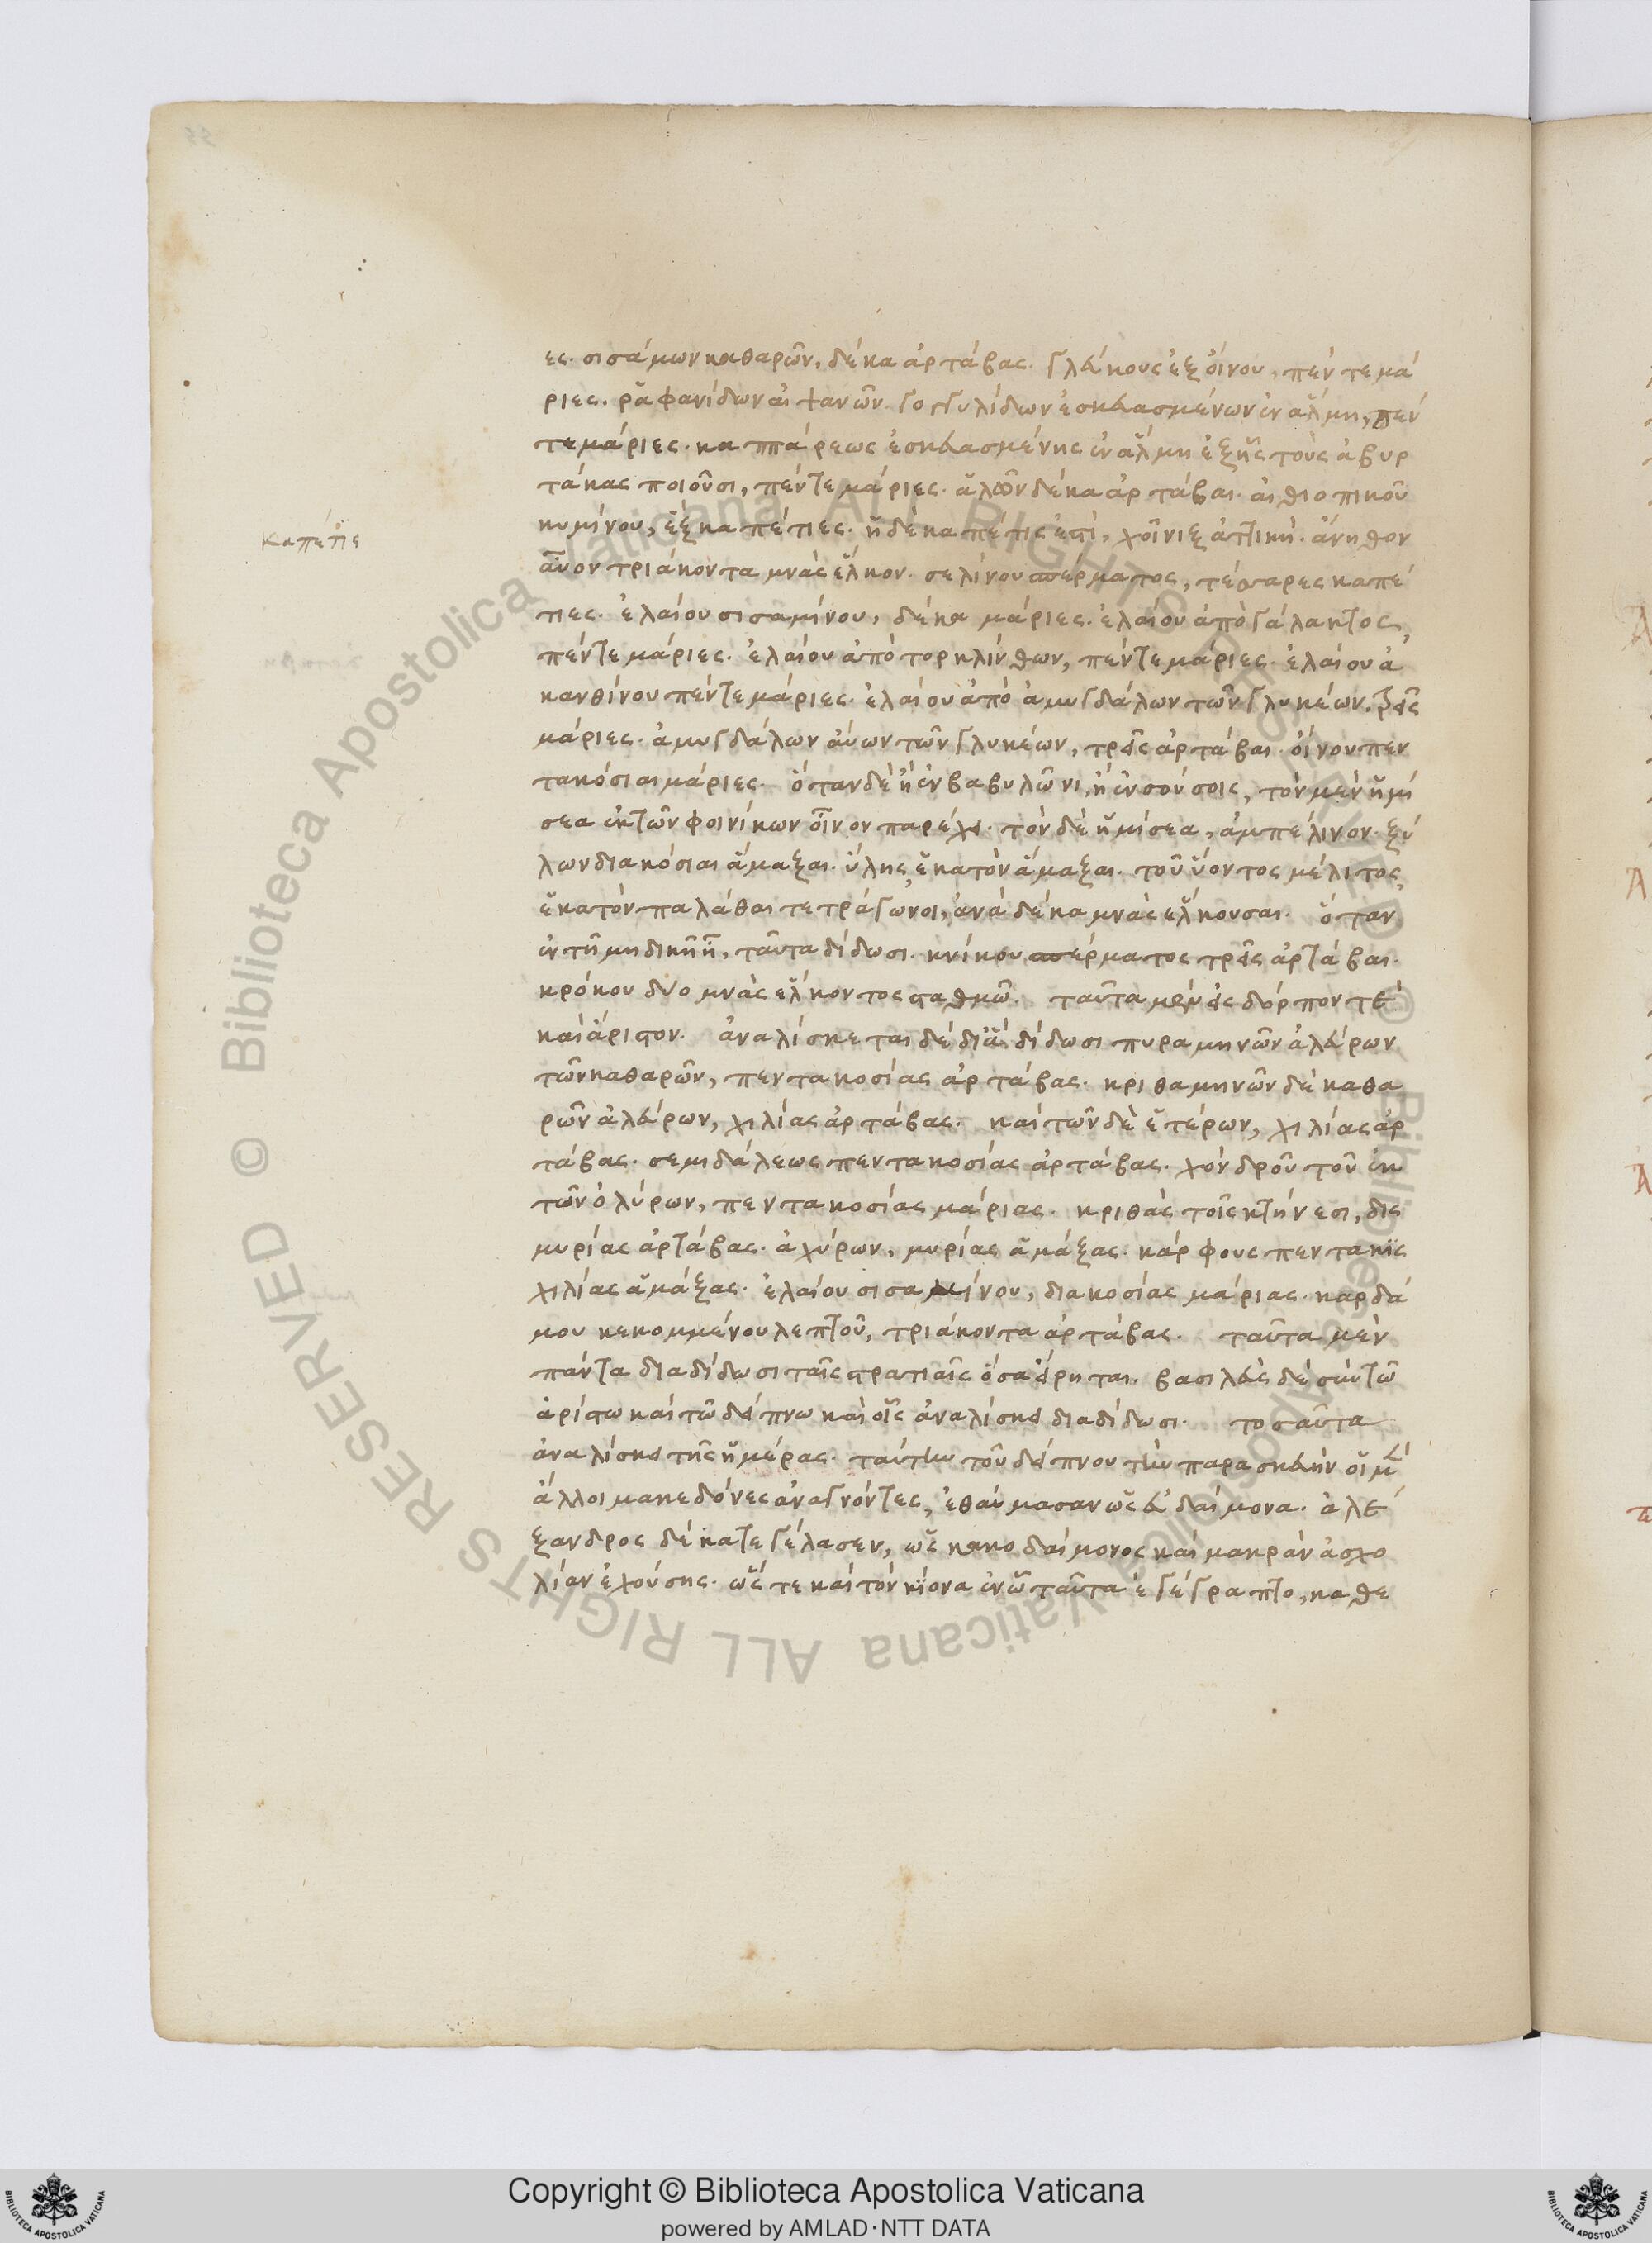 ες. σισάμων καθαρῶν, δέκα ἀρτάβας. γλεύκους ἐξ οἴνου, πέντε μά
ριες. ῥαφανίδων αἱ ψανῶν γογγυλίδων ἐσκευασμένων ἐν ἅλμῃ, πέν
τε μάριες. καππάρεως ἐσκευασμένης ἐν ἅλμῃ ἐξ ἧς τοὺς ἀβυρ
τάκας ποιοῦσι, πέντε μάριες. ἁλῶν δέκα ἀρτάβαι. αἰθιοπικοῦ
Καπέτις
κυμίνου, ἓξ καπέτιες. ἡ δὲ καπέτις ἐστὶ, χοῖνιξ ἀττική. ἀνηθον
αὖον τριάκοντα μνὰς ἕλκον. σελίνου σπέρματος, τέσσαρες καπέ
τιες. ἐλαίου σισαμίνου, δέκα μάριες. ἐλαίου ἀπὸ γάλακτος,
πέντε μάριες. ἐλαίου ἀπὸ τορκλίνθων, πέντε μάριες. ἐλαίου ἀ
κανθίνου πέντε μάριες. ἐλαίου ἀπὸ ἀμυγδάλων τῶν γλυκέων. τρεῖς
μάριες. ἀμυγδάλων αὔων τῶν γλυκέων, τρεῖς ἀρτάβαι. οἴνου πεν
τακόσιαι μάριες. ὅταν δὲ ᾖ ἐν βαβυλῶνι, ἢ ἐν σούσοις, τὸν μὲν ἡμί
σεα ἐκ τῶν φοινίκων οἶνον παρέχει. τὸν δὲ ἡμίσεα, ἀμπέλινον. ξύ
λων διακόσιαι ἅμαξαι. ὕλης ἑκατὸν ἅμαξαι. τοῦ ὕοντος μέλιτος,
ἑκατὸν παλάθαι τετράγωνοι, ἀνὰ δέκα μνὰς ἕλκουσαι. ὅταν
ἐν τῇ μηδικῇ ᾖ, ταῦτα δίδωσι. κνίκου σπέρματος τρεῖς ἀρτάβαι.
κρόκου δύο μνὰς ἕλκοντος σταθμῶ. ταῦτα μὲν εἰς δόρπον τὲ
καὶ ἄριστον. ἀναλίσκεται δὲ διὰ δίδωσι πυραμηνῶν ἀλεύρων
τῶν καθαρῶν, πεντακοσίας ἀρτάβας. κριθαμηνῶν δὲ καθα
ρῶν ἀλεύρων, χιλίας ἀρτάβας. καὶ τῶν δὲ ἑτέρων, χιλίας ἀρ
τάβας. σεμιδάλεως πεντακοσίας ἀρτάβας. χόνδρου τοῦ ἐκ
τῶν ὀλύρων, πεντακοσίας μάριας. κριθὰς τοῖς κτήνεσι, δις
μυρίας ἀρτάβας. ἀχύρων, μυρίας ἁμάξας. κάρφους πεντακις
χιλίας ἁμάξας. ἐλαίου σισαμίνου, διακοσίας μάριας. καρδά
μου κεκομμένου λεπτοῦ, τριάκοντα ἀρτάβας. ταῦτα μὲν
πάντα διαδίδωσι ταῖς στρατιαῖς ὅσα εἴρηται. βασιλεὺς δὲ σὺν τῶ
ἀρίστω καὶ τῶ δείπνω καὶ οἷς ἀναλίσκει διαδίδωσι. τοσαῦτα
ἀναλίσκει τῆς ἡμέρας. ταύτην τοῦ δείπνου τὴν παρασκευὴν οἱ μὲν
ἄλλοι μακεδόνες ἀναγνόντες, ἐθαύμασαν ὡς εὐδαίμονα. ἀλέ
ξανδρος δὲ κατεγέλασεν, ὡς κακοδαίμονος καὶ μακρὰν ἀσχο
λίαν ἐχούσης. ὥς τε καὶ τὸν κίονα ἐν ὧ ταῦτα ἐγέγραπτο, καθε
© Biblioteca Apostolica Vaticana ALL RIGHTS RESERVED
Copyright © Biblioteca Apostolica Vaticana
powered by AMLAD·NTT DATA